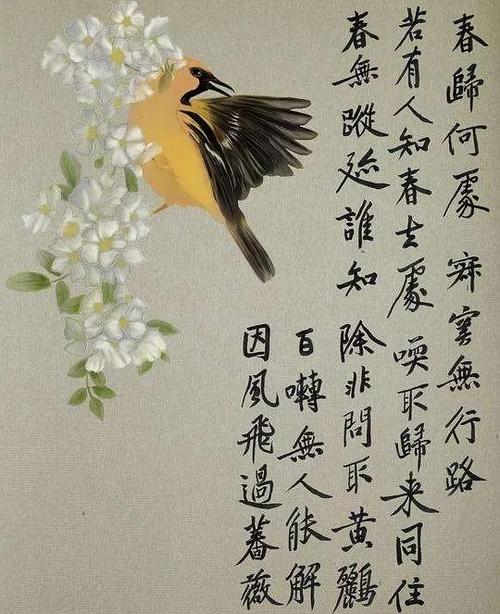 春歸何處 寂寞無行路
若有人知春去處 喚取歸来同住
春無蹤迹誰知 除非問取黄鸝
百囀無人能解
因風飛過薔薇